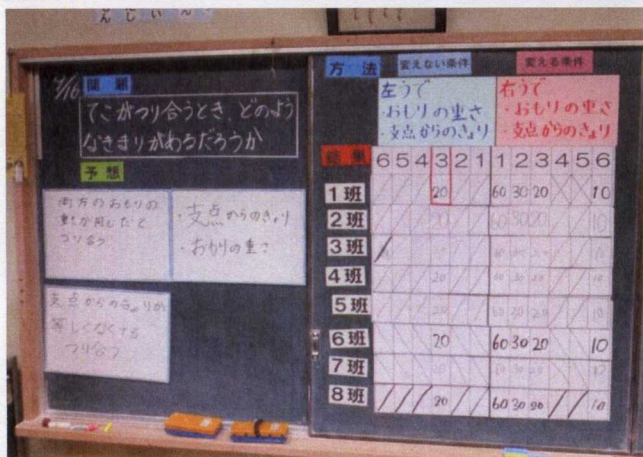 んじいん
7/16 問題
てこがつり合うとき、どのよう
なきまりがあるだろうか
予想
両方のおもりの
重さが同じだと
つり合う
・支点からのきょり
・おもりの重さ
支点からのきょりが
等しくなくても
つり合う
方法 変えない条件 変える条件
左うで
・おもりの重さ
・支点からのきょり
右うで
・おもりの重さ
・支点からのきょり
結果 6 5 4 3 2 1 1 2 3 4 5 6
1班 20 60 30 20 10
2班 20 60 30 20 10
3班
4班 20 60 30 20 10
5班 20 60 30 20 10
6班 20 60 30 20 10
7班 20 60 30 20 10
8班 20 60 30 20 10